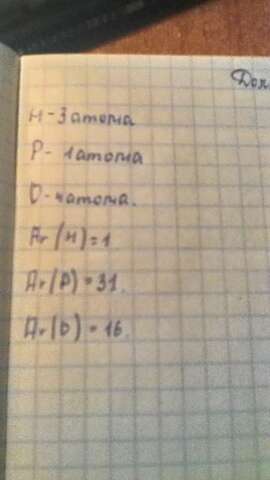 Дон
H - 3 атома
P - 1 атома
O - 4 атома.
Ar (H) = 1
Ar (P) = 31.
Ar (O) = 16.